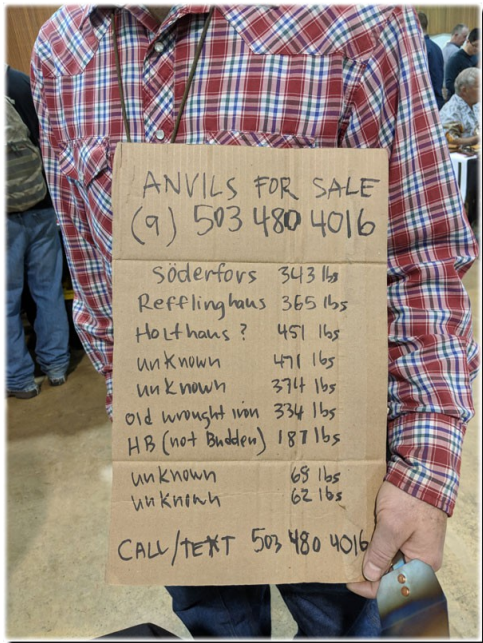 ANVILS FOR SALE
(9) 503 480 4016
Söderfors 343 lbs
Refflinghaus 365 lbs
Holthaus ? 451 lbs
unknown 471 lbs
unknown 374 lbs
old wrought iron 334 lbs
HB (not Budden) 187 lbs
unknown 69 lbs
unknown 62 lbs
CALL/TEXT 503 480 4016